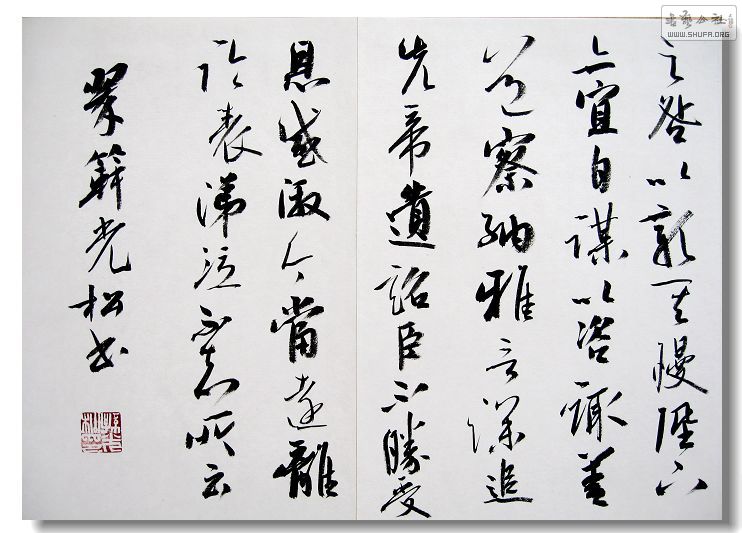 書藝公社
WWW.SHUFA.ORG
之咎以彰其慢陛下
亦宜自謀以咨諏善
道察納雅言深追
先帝遺詔臣不勝受
恩感激今當遠離
臨表涕泣不知所云
光松書